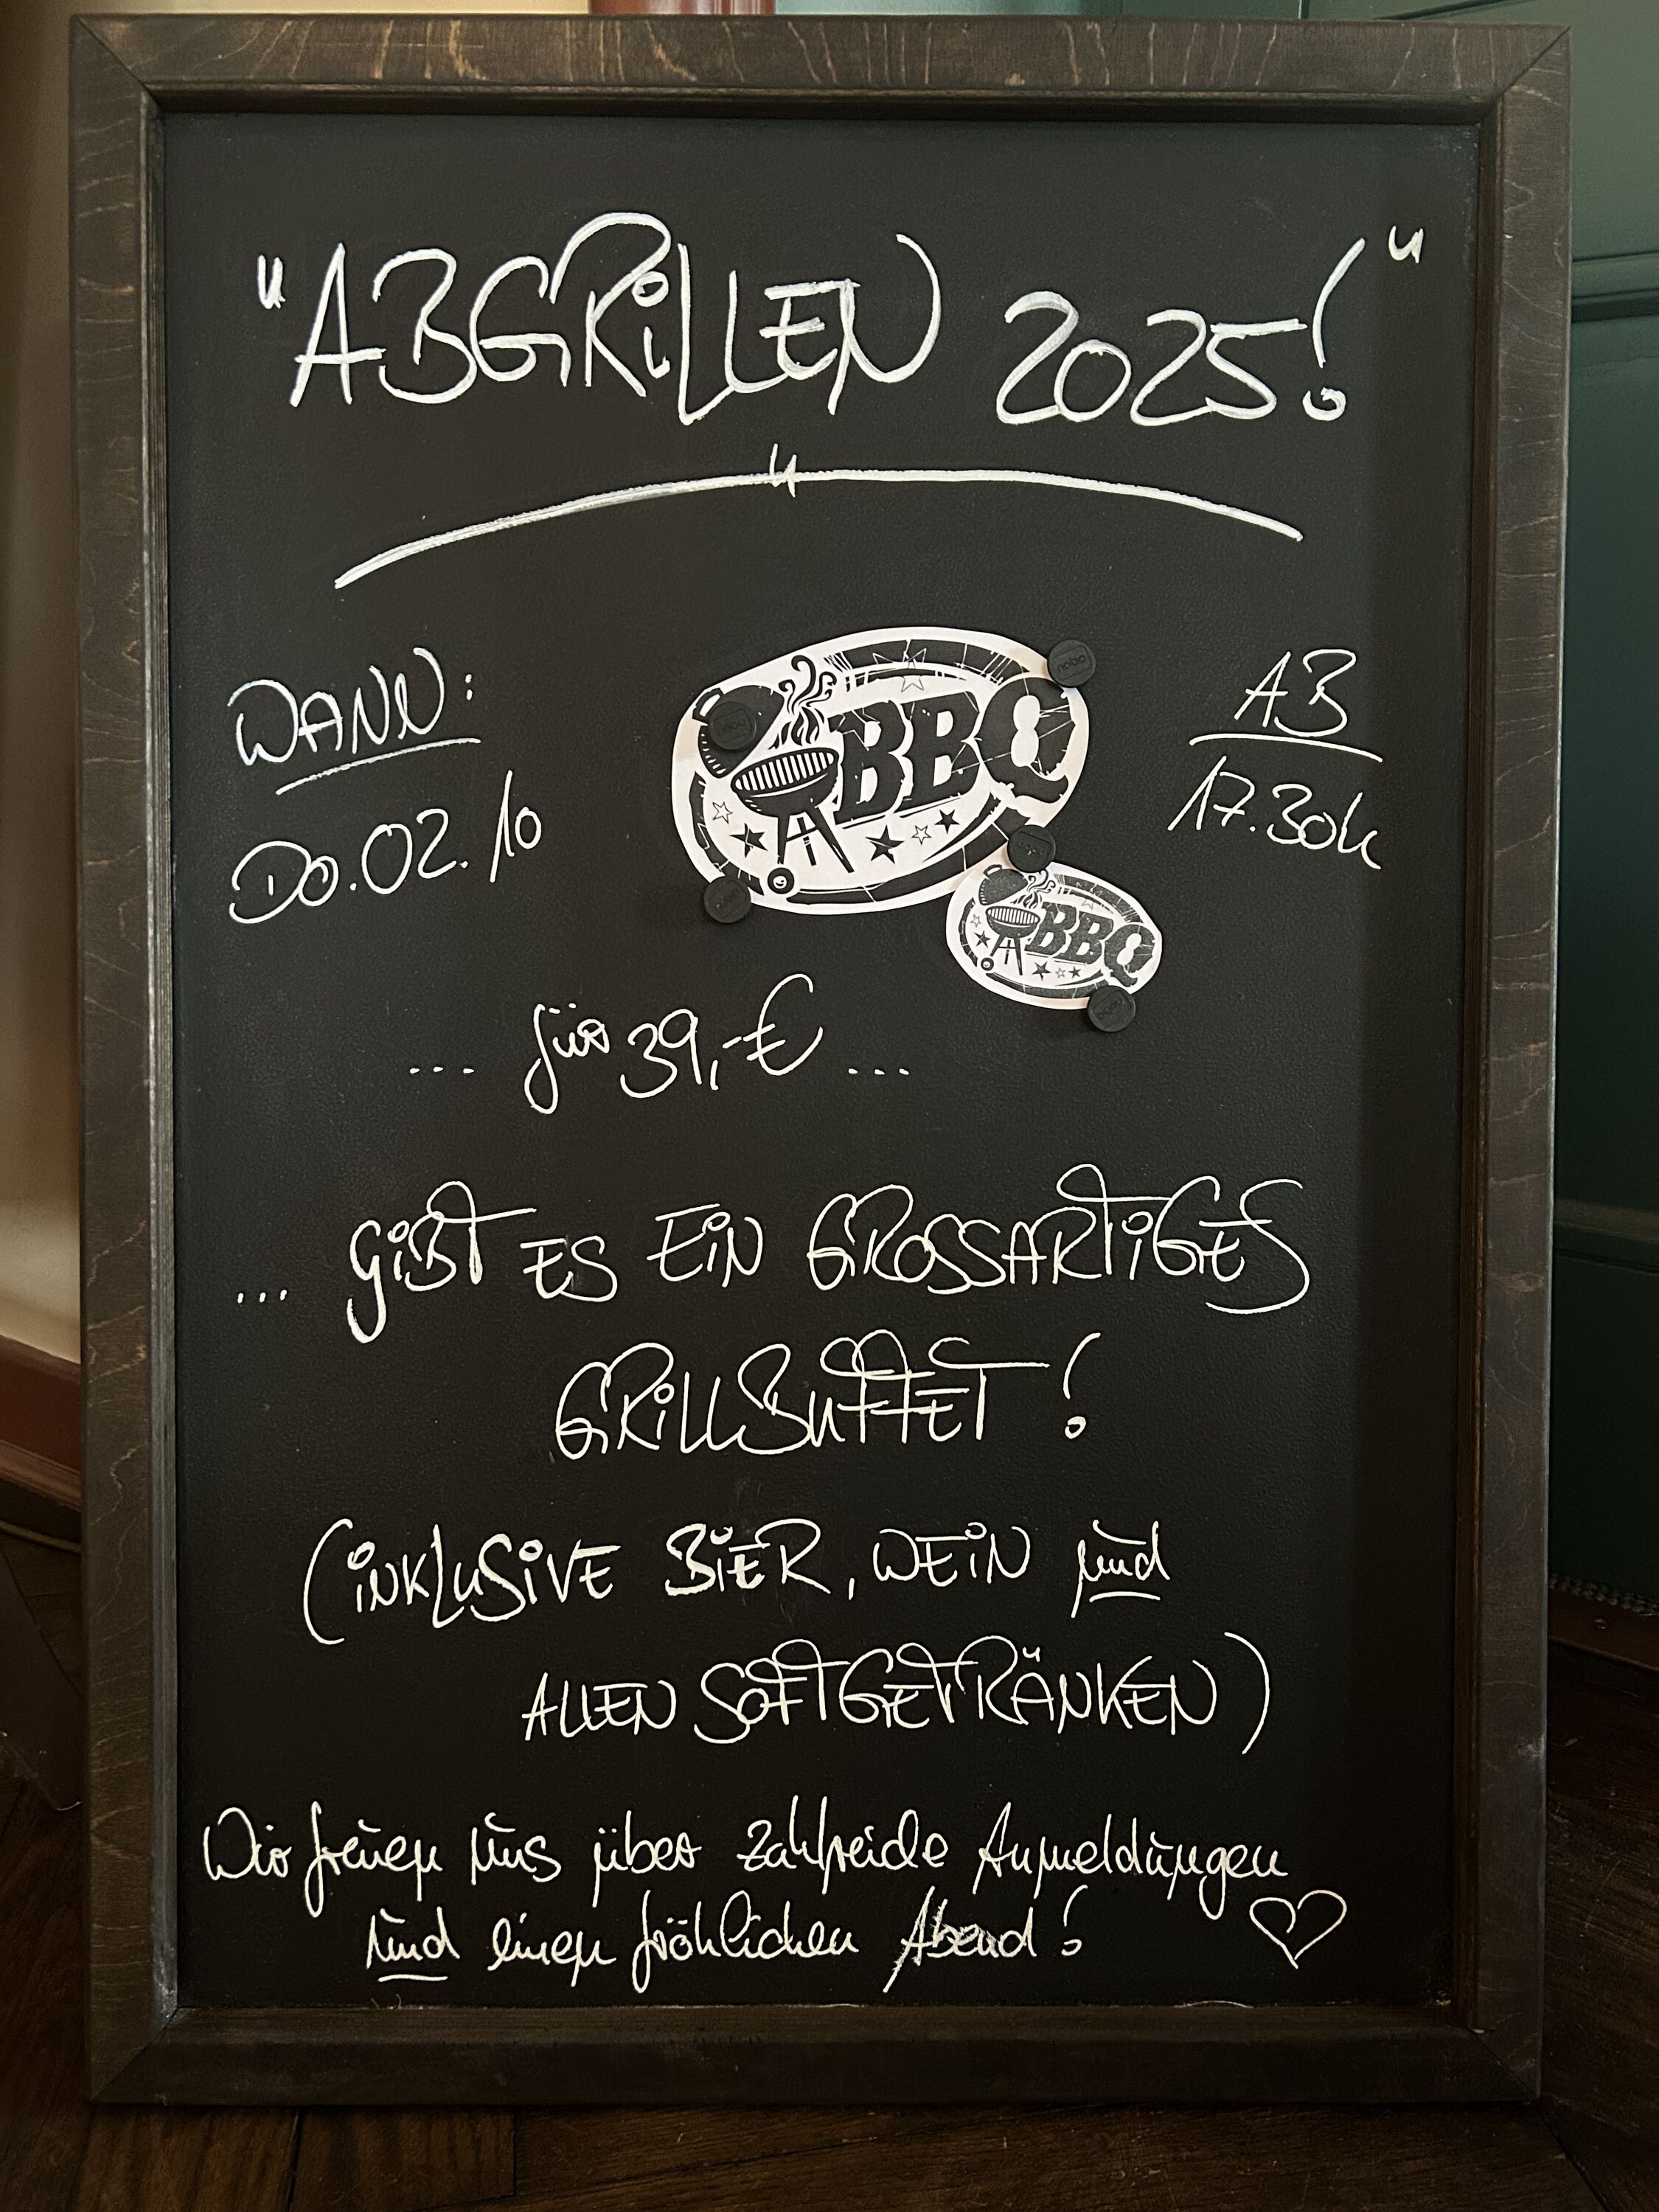 "ABGRILLEN 2025!"
WANN:
DO. 02.10
BBQ
BBQ
AB
17.30h
... für 39,-€ ...
... GIBT ES EIN GROSSARTIGES
GRILLBUFFET!
(INKLUSIVE BIER, WEIN und
ALLEN SOFTGETRÄNKEN)
Wir freuen uns über zahlreiche Anmeldungen
und einen fröhlichen Abend!